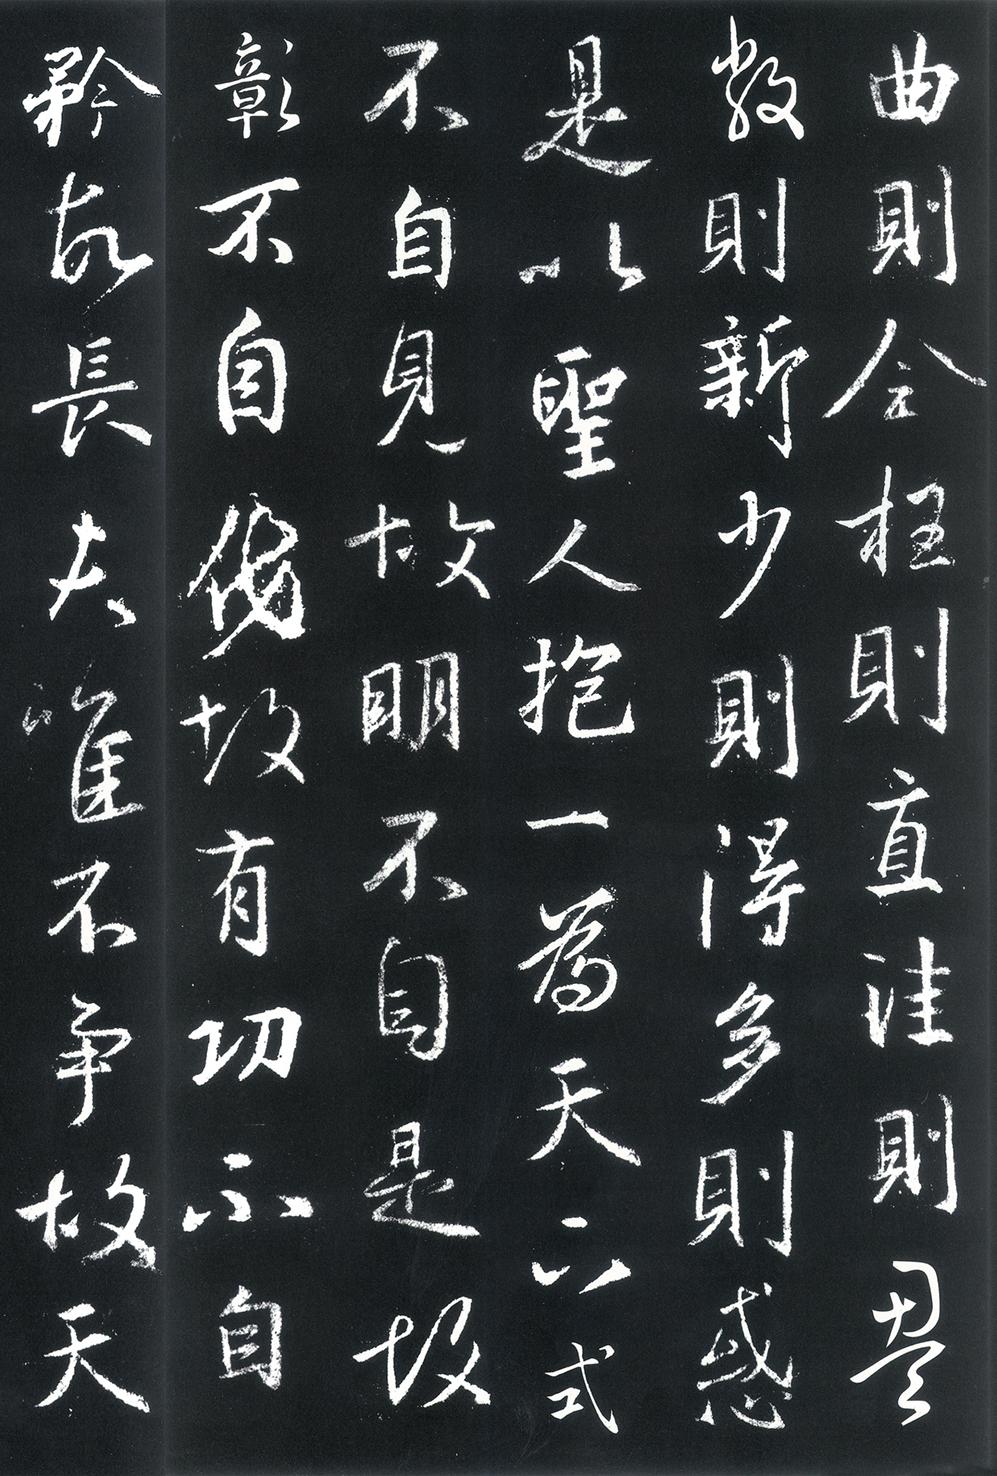 曲則全枉則直洼則盈
敝則新少則得多則惑
是以聖人抱一為天下式
不自見故明不自是故
彰不自伐故有功不自
矜故長夫唯不争故天